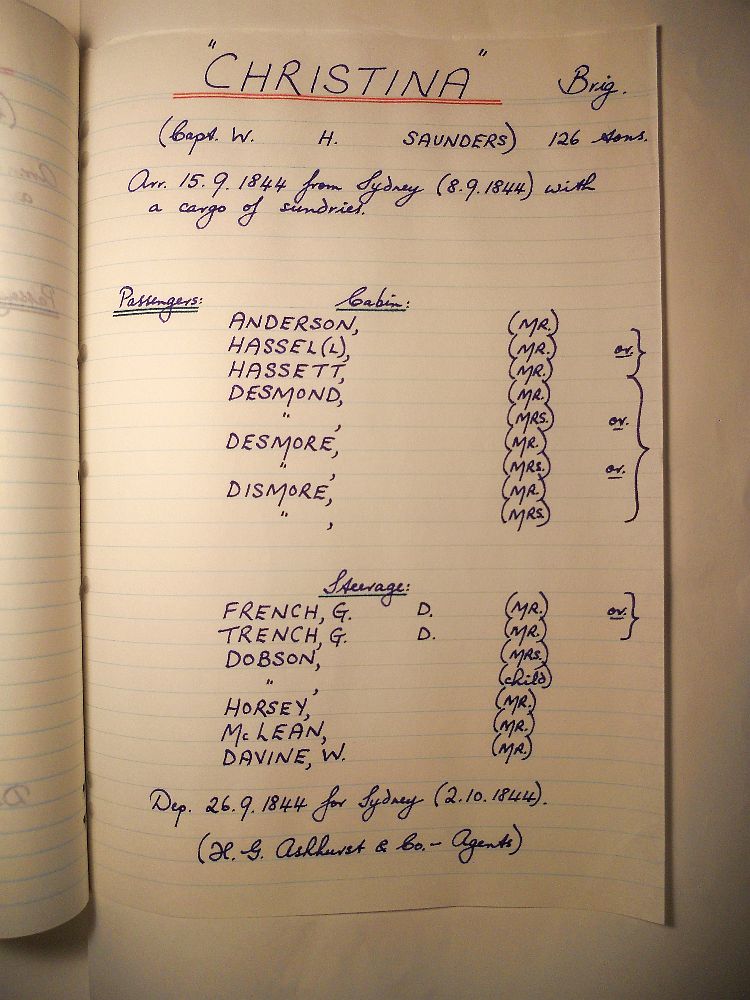 "CHRISTINA" Brig.
(Capt. W. H. SAUNDERS) 126 tons.
Arr. 15.9.1844 from Sydney (8.9.1844) with
a cargo of sundries.
Passengers: Cabin:
ANDERSON, (MR.)
HASSEL(L), (MR.) or }
HASSETT, (MR.)
DESMOND, (MR.)
" , (MRS.) or.
DESMORE, (MR.)
" , (MRS.) or.
DISMORE, (MR.)
" , (MRS.)
Steerage:
FRENCH, G. D. (MR.) or. }
TRENCH, G. D. (MR.)
DOBSON, (MRS.)
" , (child)
HORSEY, (MR.)
McLEAN, (MR.)
DAVINE, W. (MR.)
Dep. 26.9.1844 for Sydney (2.10.1844).
(H. G. Ashhurst & Co. - Agents)